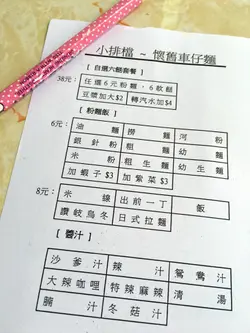 小排檔 ~ 懷舊車仔麵
【自選六餸套餐】
38元: 任選6元粉麵, 6款餸
豆漿加大$2 轉汽水加$4
【粉麵飯】
6元: 油麵 撈麵 河粉
銀針粉 粗麵 幼麵
米粉 粗生麵 幼生麵
加蝦子$3 加紫菜$3
8元: 米線 出前一丁 飯
讚岐烏冬 日式拉麵
【醬汁】
沙爹汁 辣汁 鴛鴦汁
大辣咖哩 特辣麻辣 清湯
腩汁 冬菇汁